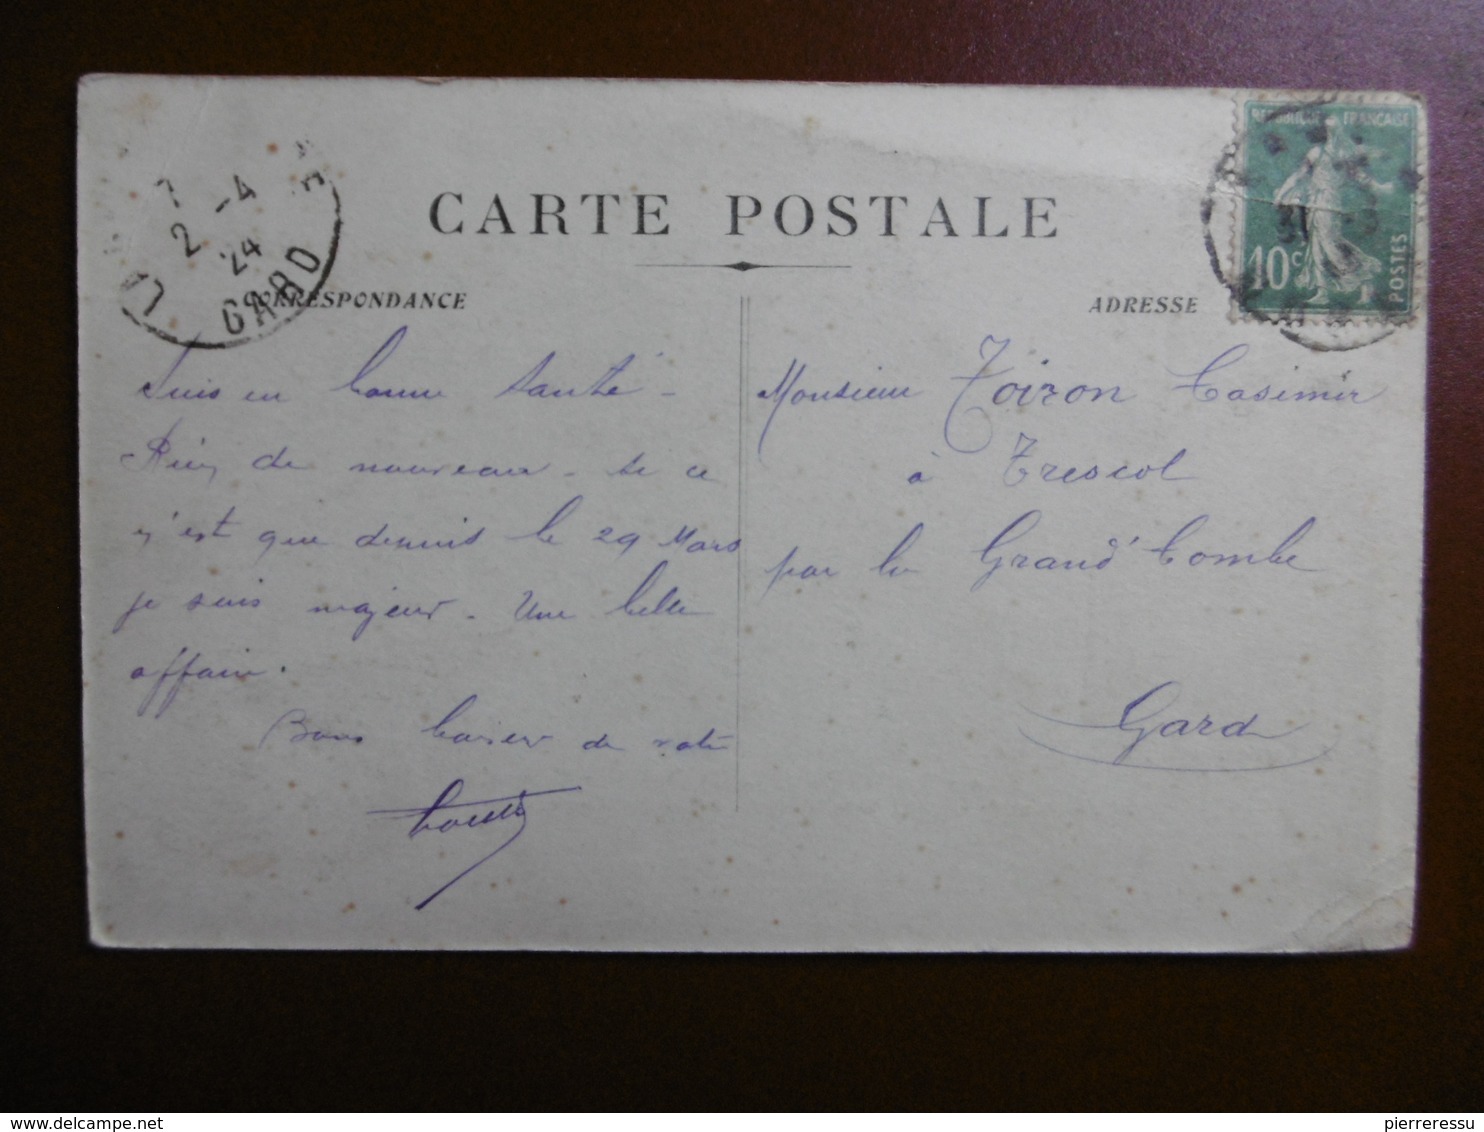 CARTE POSTALE
CORRESPONDANCE
ADRESSE
REPUBLIQUE FRANCAISE
10c
POSTES
31
2 -4
24
GARD
Suis en bonne santé -
Rien de nouveau - si ce
n'est que depuis le 29 Mars
je suis majeur - Une belle
affaire.
Bons baisers de votre
Monsieur Toiron Casimir
à Trescol
par la Grand'Combe
Gard
delcampe.net
pierreressu